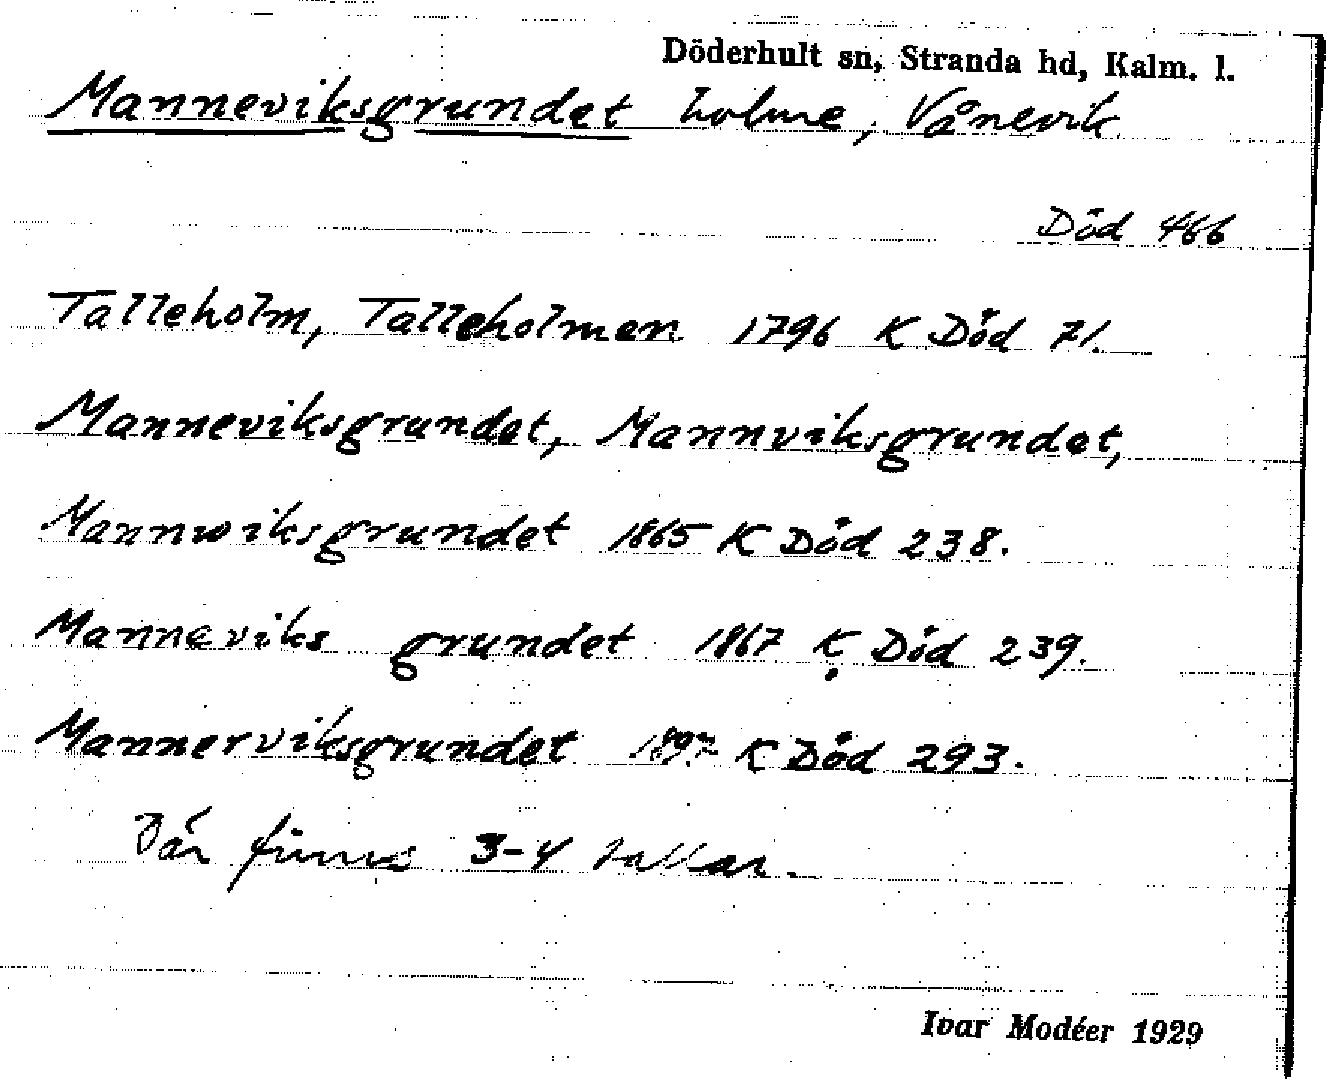 Döderhult sn, Stranda hd, Kalm. l.
Manneviksgrundet holme, Vånevik
Död 466
Talleholm, Talleholmen 1796 K Död 71.
Manneviksgrundet, Mannviksgrundet,
Mannwiksgrundet 1865 K Död 238.
Manneviks grundet 1867 K Död 239.
Mannerviksgrundet 1897 K Död 293.
Där finns 3-4 tallar.
Ivar Modéer 1929